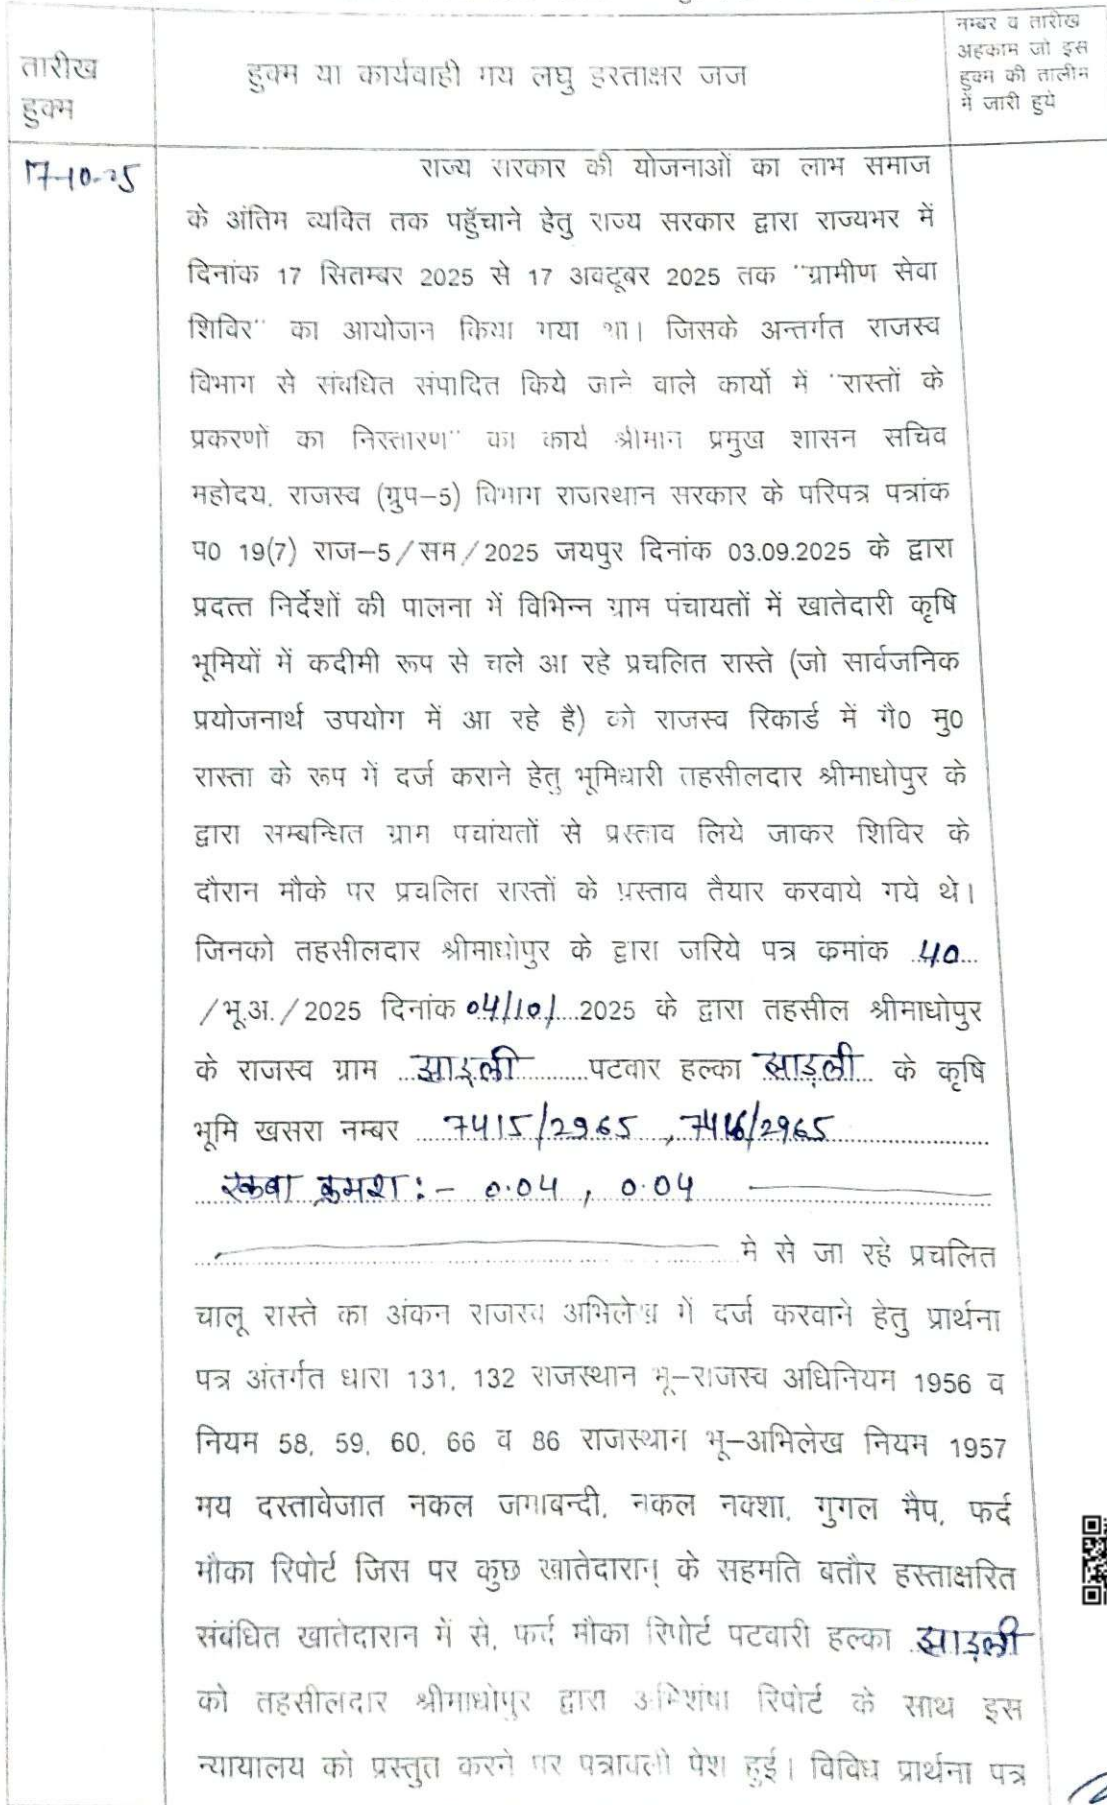 तारीख
हुक्म
हुक्म या कार्यवाही मय लघु हस्ताक्षर जज
नम्बर व तारीख
अहकाम जो इस
हुक्म की तालीम
में जारी हुये
17-10-25
राज्य सरकार की योजनाओं का लाभ समाज
के अंतिम व्यक्ति तक पहुँचाने हेतु राज्य सरकार द्वारा राज्यभर में
दिनांक 17 सितम्बर 2025 से 17 अक्टूबर 2025 तक "ग्रामीण सेवा
शिविर" का आयोजन किया गया था। जिसके अन्तर्गत राजस्व
विभाग से संबधित संपादित किये जाने वाले कार्यो में "रास्तों के
प्रकरणों का निस्तारण" का कार्य श्रीमान प्रमुख शासन सचिव
महोदय, राजस्व (ग्रुप-5) विभाग राजस्थान सरकार के परिपत्र पत्रांक
प0 19(7) राज-5/सम/2025 जयपुर दिनांक 03.09.2025 के द्वारा
प्रदत्त निर्देशों की पालना में विभिन्न ग्राम पंचायतों में खातेदारी कृषि
भूमियों में कदीमी रूप से चले आ रहे प्रचलित रास्ते (जो सार्वजनिक
प्रयोजनार्थ उपयोग में आ रहे है) को राजस्व रिकार्ड में गै0 मु0
रास्ता के रूप में दर्ज कराने हेतु भूमिधारी तहसीलदार श्रीमाधोपुर के
द्वारा सम्बन्धित ग्राम पचांयतों से प्रस्ताव लिये जाकर शिविर के
दौरान मौके पर प्रचलित रास्तों के प्रस्ताव तैयार करवाये गये थे।
जिनको तहसीलदार श्रीमाधोपुर के द्वारा जरिये पत्र कमांक 40
/भू.अ./2025 दिनांक 04/10/ 2025 के द्वारा तहसील श्रीमाधोपुर
के राजस्व ग्राम झाड़ली पटवार हल्का झाड़ली के कृषि
भूमि खसरा नम्बर 7415/2965, 7416/2965
रकबा क्रमश:- 0.04, 0.04
मे से जा रहे प्रचलित
चालू रास्ते का अंकन राजस्व अभिलेख में दर्ज करवाने हेतु प्रार्थना
पत्र अंतर्गत धारा 131, 132 राजस्थान भू-राजस्व अधिनियम 1956 व
नियम 58, 59, 60, 66 व 86 राजस्थान भू-अभिलेख नियम 1957
मय दस्तावेजात नकल जमाबन्दी, नकल नक्शा, गुगल मैप, फर्द
मौका रिपोर्ट जिस पर कुछ खातेदारान् के सहमति बतौर हस्ताक्षरित
संबंधित खातेदारान में से, फर्द मौका रिपोर्ट पटवारी हल्का झाड़ली
को तहसीलदार श्रीमाधोपुर द्वारा अभिशंषा रिपोर्ट के साथ इस
न्यायालय को प्रस्तुत करने पर पत्रावली पेश हुई। विविध प्रार्थना पत्र